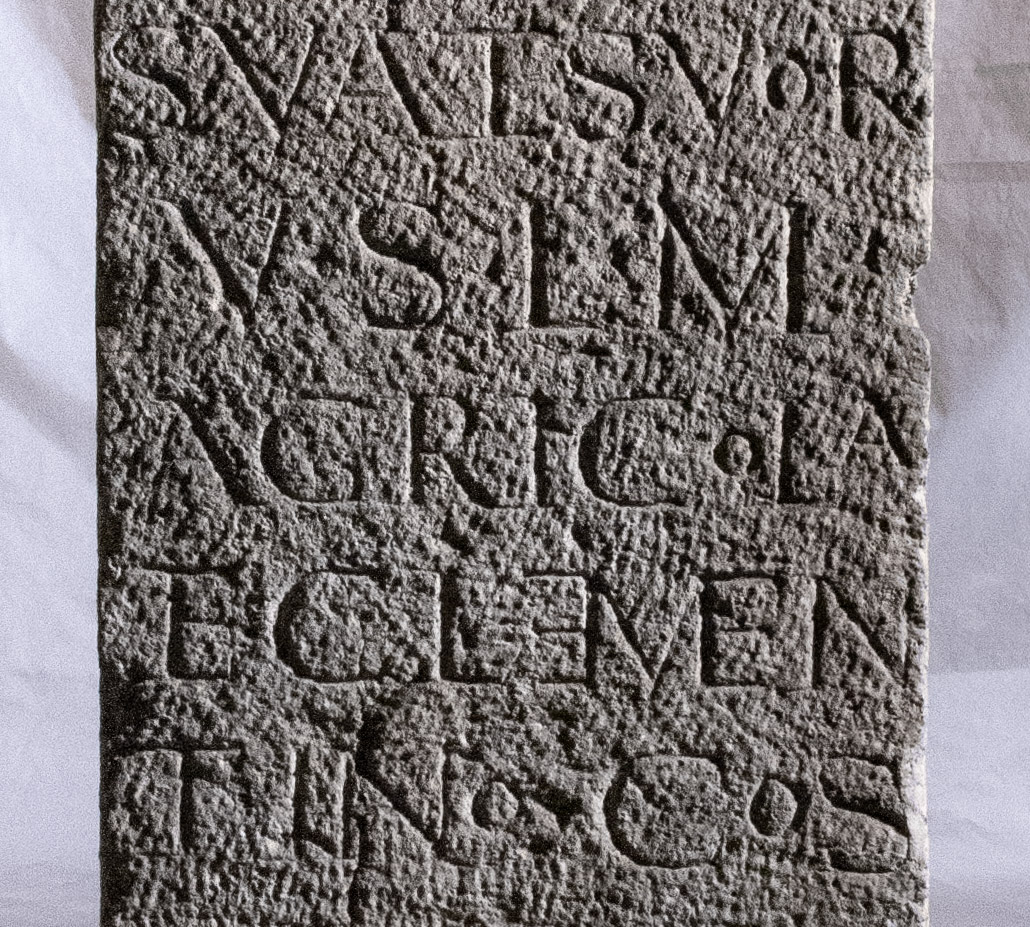 SVA ET SVOR
V·S·L·M·
AGRICOLA
ET CLEMEN
TINO·COS